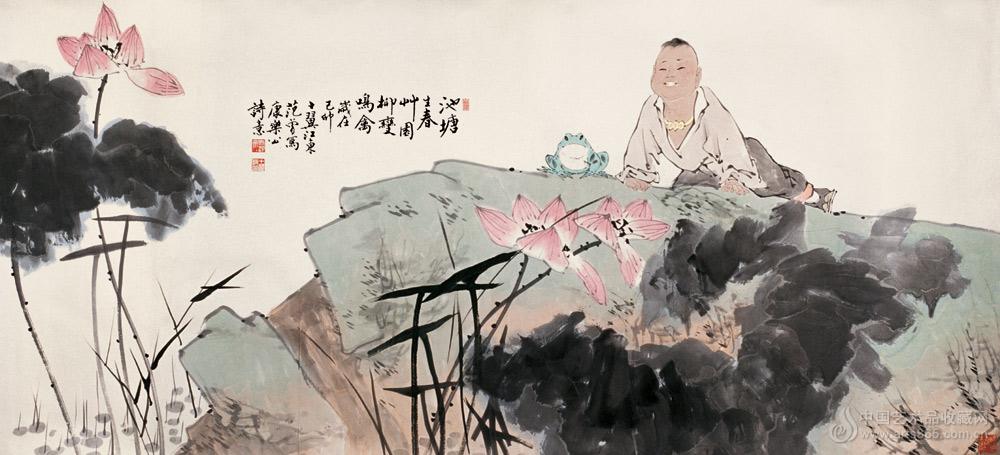 池塘
生春
艸園
柳變
鳴禽
歲在
己卯
十翼江東
范曾寫
康樂公
詩意
中国艺术品收藏网